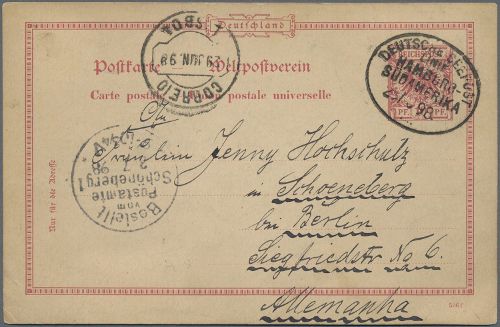 Deutschland
Postkarte Weltpostverein
Carte postale postale universelle
CORREIO
29 JUN 98
DEUTSCHE SEEPOST
LINIE
HAMBURG-
SÜDAMERIKA
98
REICHSPOST
PF. PF.
Nur für die Adresse
Bestellt
vom
Postamte
Schöneberg 1
98
An
Fräulein Jenny Hochschulz
in Schoeneberg
bei Berlin
Siegfriedstr No 6.
Allemanha